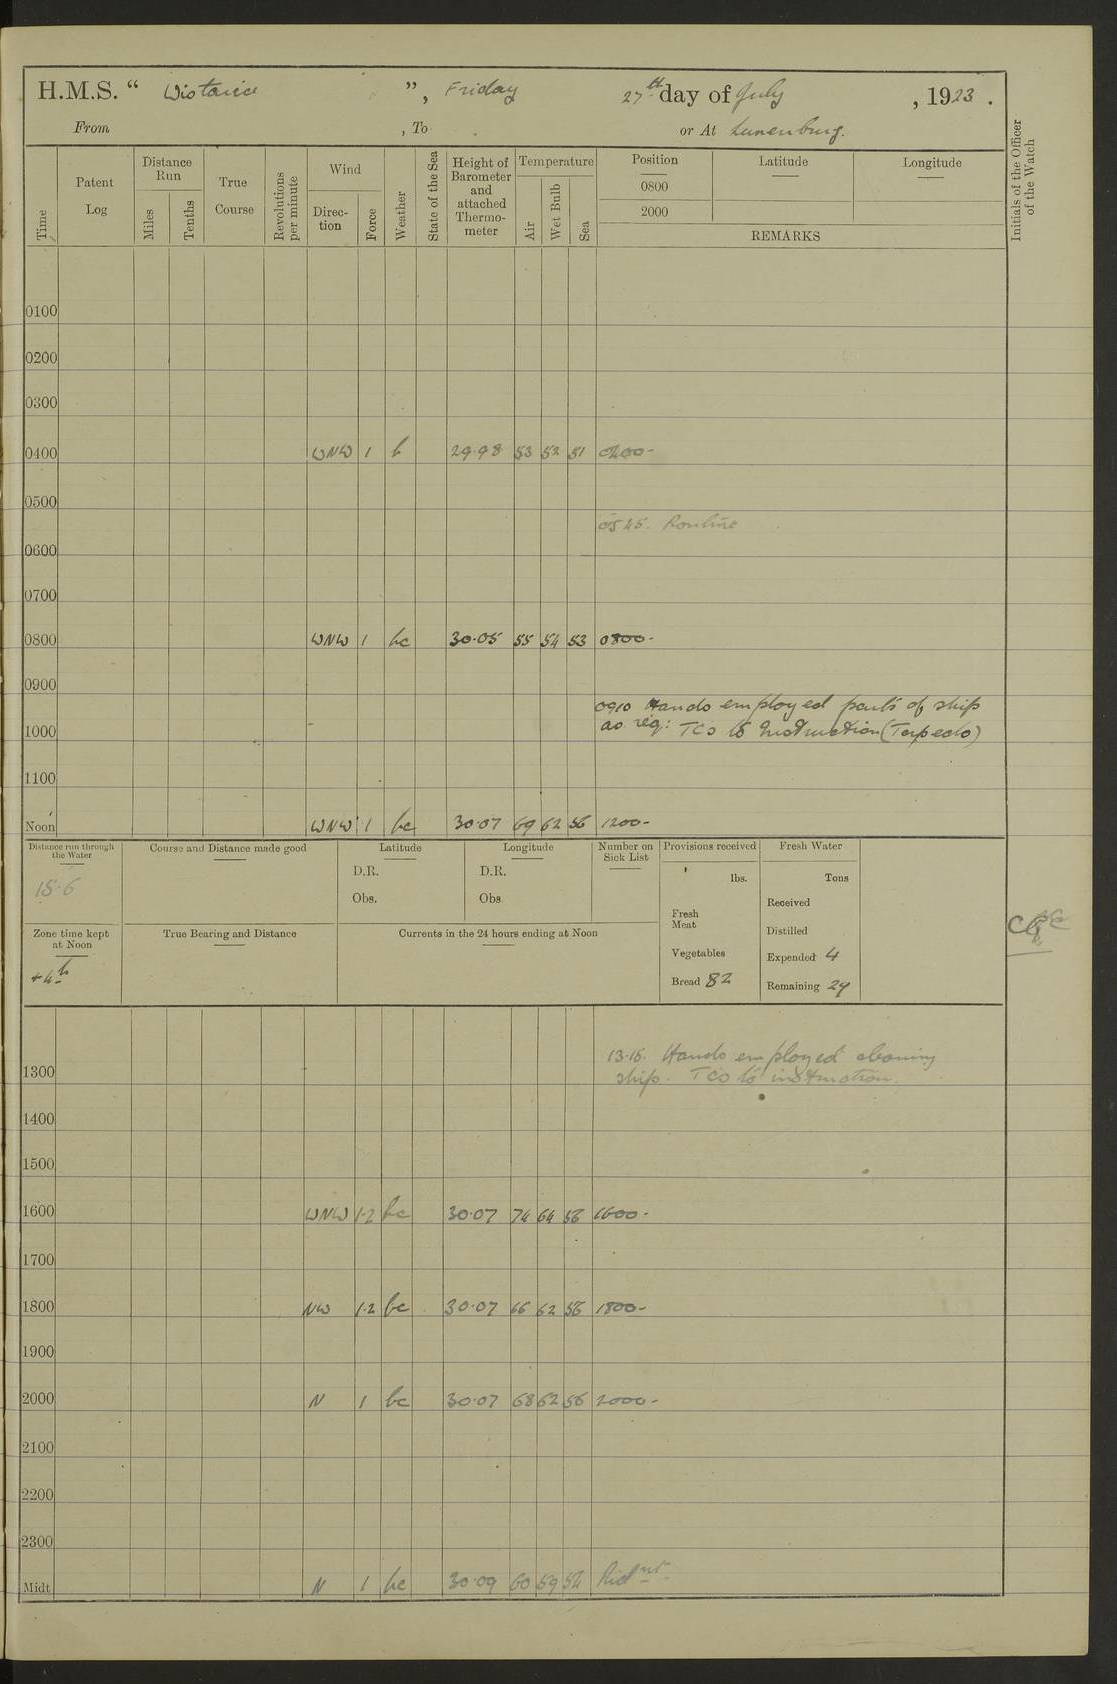 H.M.S. “ Wistaria ”, Friday 27th day of July, 1923.
From , To or At Lunenburg.
Time
Patent Log
Distance Run
Miles
Tenths
True Course
Revolutions per minute
Wind
Direction
Force
Weather
State of the Sea
Height of Barometer and attached Thermometer
Temperature
Air
Wet Bulb
Sea
Position
0800
2000
Latitude
Longitude
REMARKS
Initials of the Officer of the Watch
0100
0200
0300
0400 WNW 1 b 29.98 53 52 51 0400-
0500
0545. Routine
0600
0700
0800 WNW 1 bc 30.05 55 54 53 0800-
0900
0910 Hands employed parts of ship
1000 as req: TCs to Instruction (Torpedo)
1100
Noon WNW 1 bc 30.07 69 62 56 1200-
Distance run through the Water
15.6
Course and Distance made good
Latitude
D.R.
Obs.
Longitude
D.R.
Obs
Number on Sick List
Provisions received
lbs.
Fresh Meat
Vegetables
Bread 82
Fresh Water
Tons
Received
Distilled
Expended 4
Remaining 29
Zone time kept at Noon
+4h
True Bearing and Distance
Currents in the 24 hours ending at Noon
13.15. Hands employed cleaning
1300 ship. TCs to instruction.
1400
1500
1600 WNW 1-2 bc 30.07 74 64 56 1600-
1700
1800 NW 1-2 bc 30.07 66 62 56 1800-
1900
2000 N 1 bc 30.07 68 62 56 2000-
2100
2200
2300
Midt N 1 bc 30.09 60 59 54 Midnt.